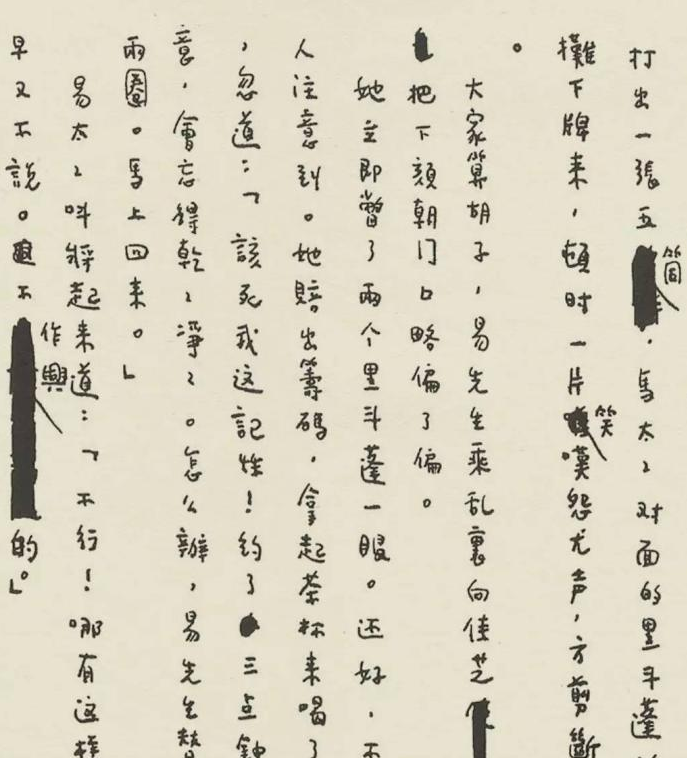 打出一張五筒，馬太々对面的黑斗蓬
攤下牌来，頓时一片笑嘆怨尤声，方剪斷
。
大家算胡子，易先生乘乱裏向佳芝
把下頦朝门口略偏了偏。
她立即瞥了兩个黑斗蓬一眼。还好，不
人注意到。她賠出籌碼，拿起茶杯来喝了
，忽道：「該死我这記性！約了三点鐘
意，會忘得乾々淨々。怎么辦，易先生替
兩圈。馬上回来。」
易太々叫將起来道：「不行！哪有这样
早又不說。不作興的。」